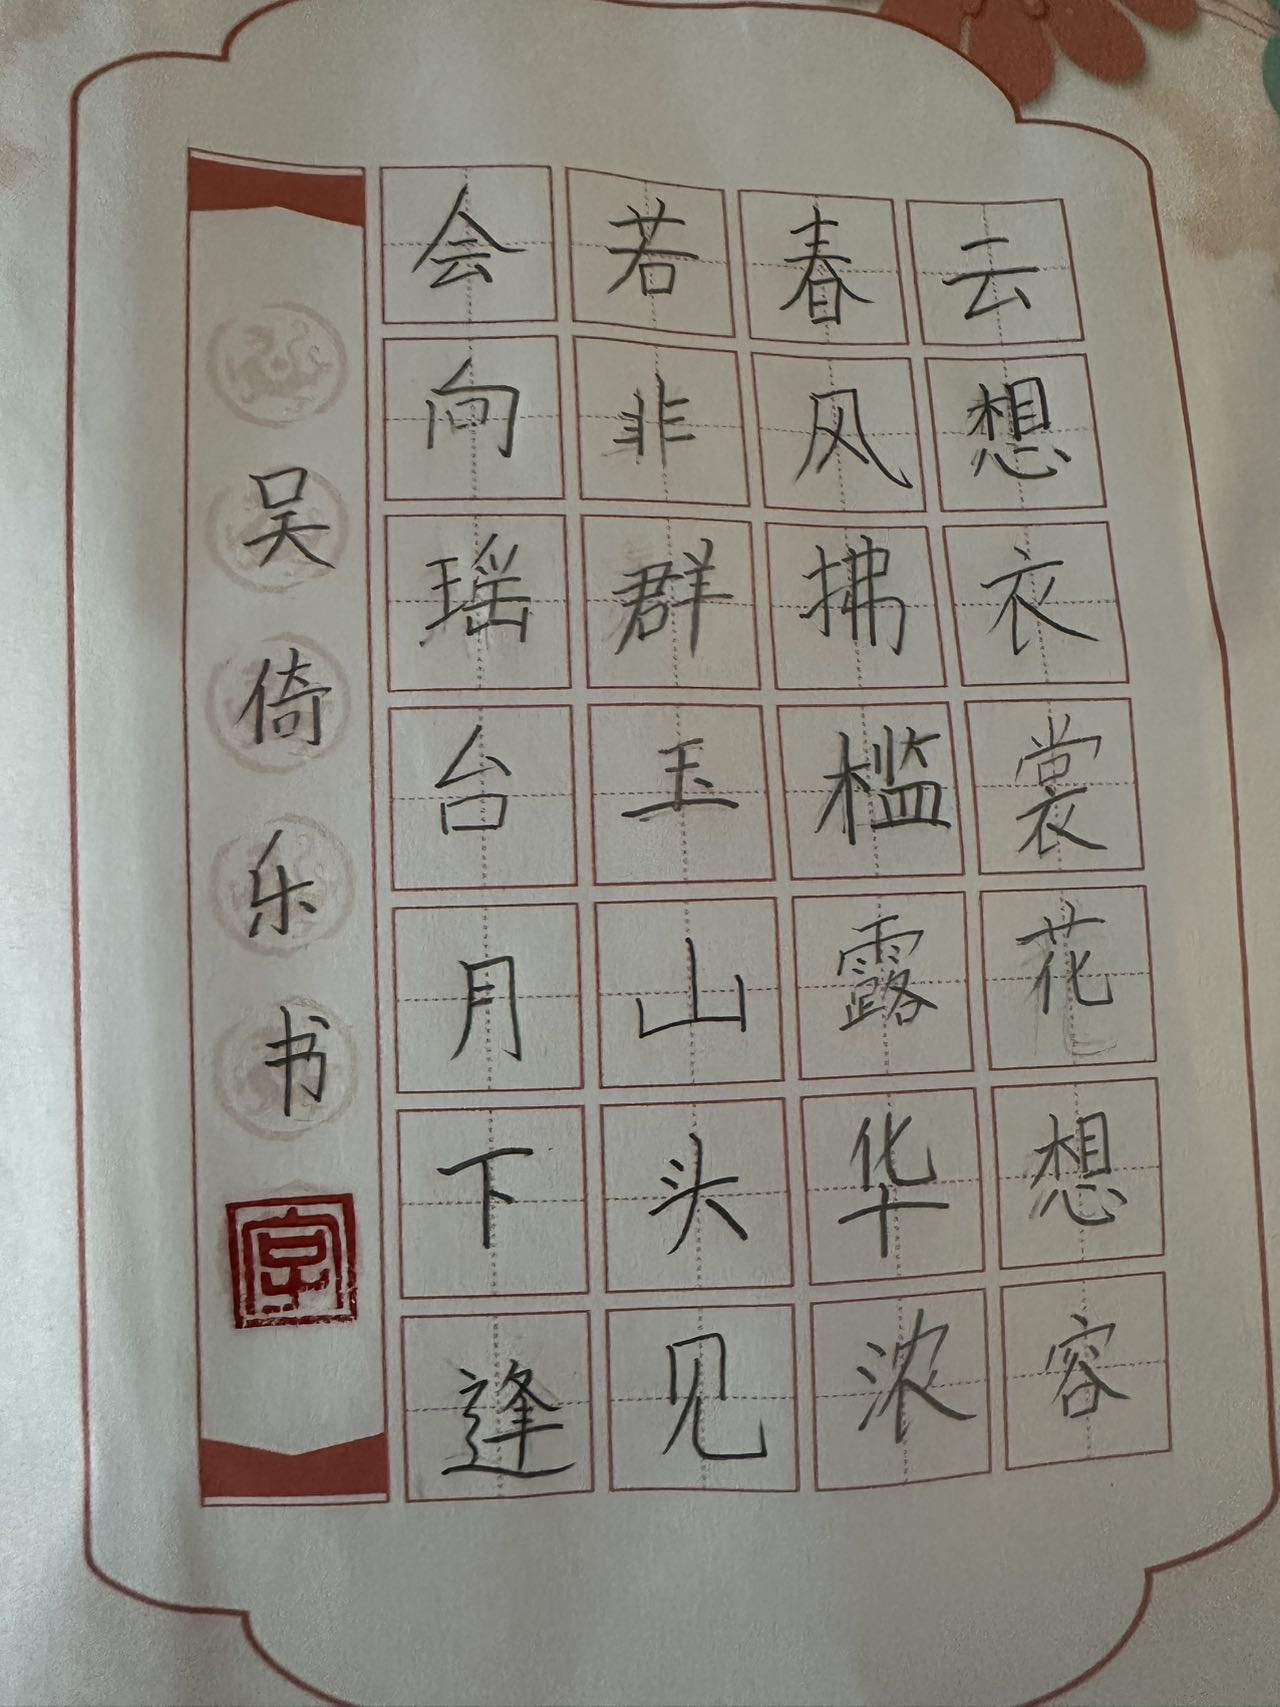 云想衣裳花想容
春风拂槛露华浓
若非群玉山头见
会向瑶台月下逢
吴倚乐书
字